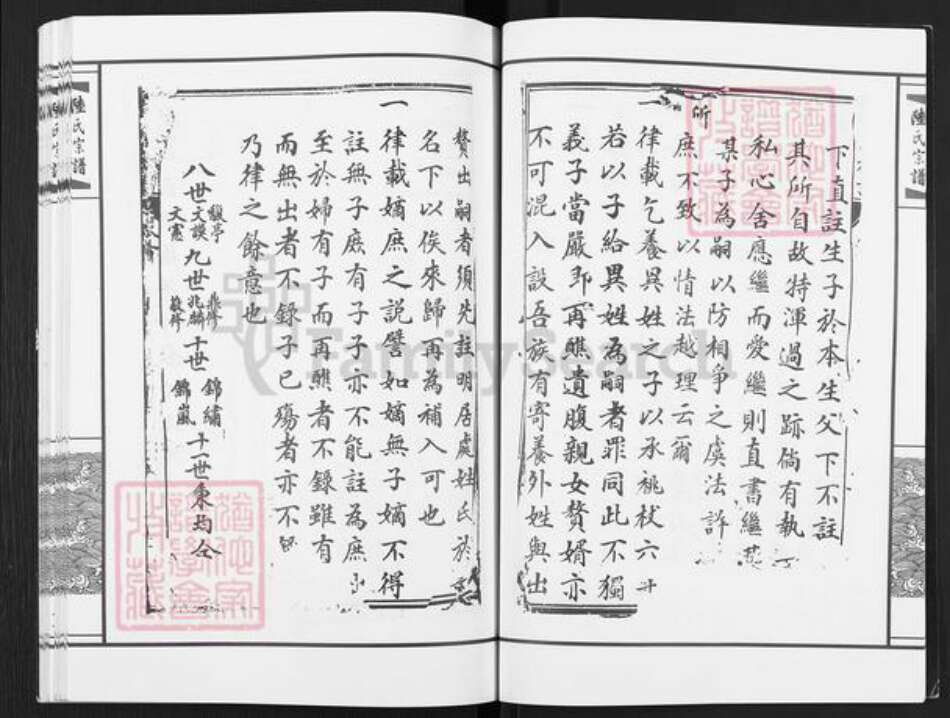 陸氏宗譜
下直註生子於本生父下不註
其所自故特渾過之跡倘有執
私心舍應繼而愛繼則直書繼
某子為嗣以防相爭之虞法許
所
庶不致以情法越理云爾
一律載乞養異姓之子以承祧杖六十
若以子給異姓為嗣者罪同此不獨
義子當嚴即再醮遺腹親女贅婿亦
不可混入設吾族有寄養外姓與出
贅出嗣者須先註明居處姓氏於
名下以俟來歸再為補入可也
一律載嫡庶之說譬如嫡無子嫡不得
註無子庶有子子亦不能註為庶出
至於婦有子而再醮者不錄雖有
而無出者不錄子已殤者亦不
乃律之餘意也
八世 文謨 文憲 九世 兆麟 十世 錦繡 錦嵐 十一世秉均仝
陸氏宗譜
FamilySearch